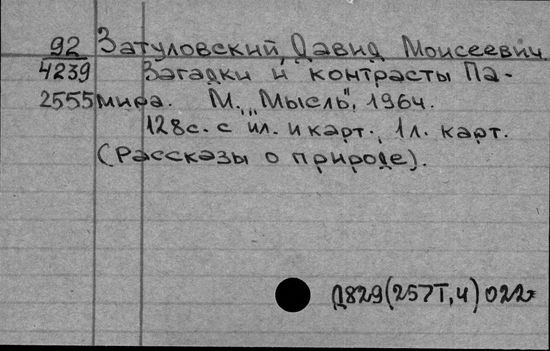 92 Затуловский, Давид Моисеевич.
4239 Загадки и контрасты Па-
2555 мира. М., "Мысль", 1964.
128с. с ил. и карт., 1 л. карт.
(Рассказы о природе).
Д829(257Т,4)022